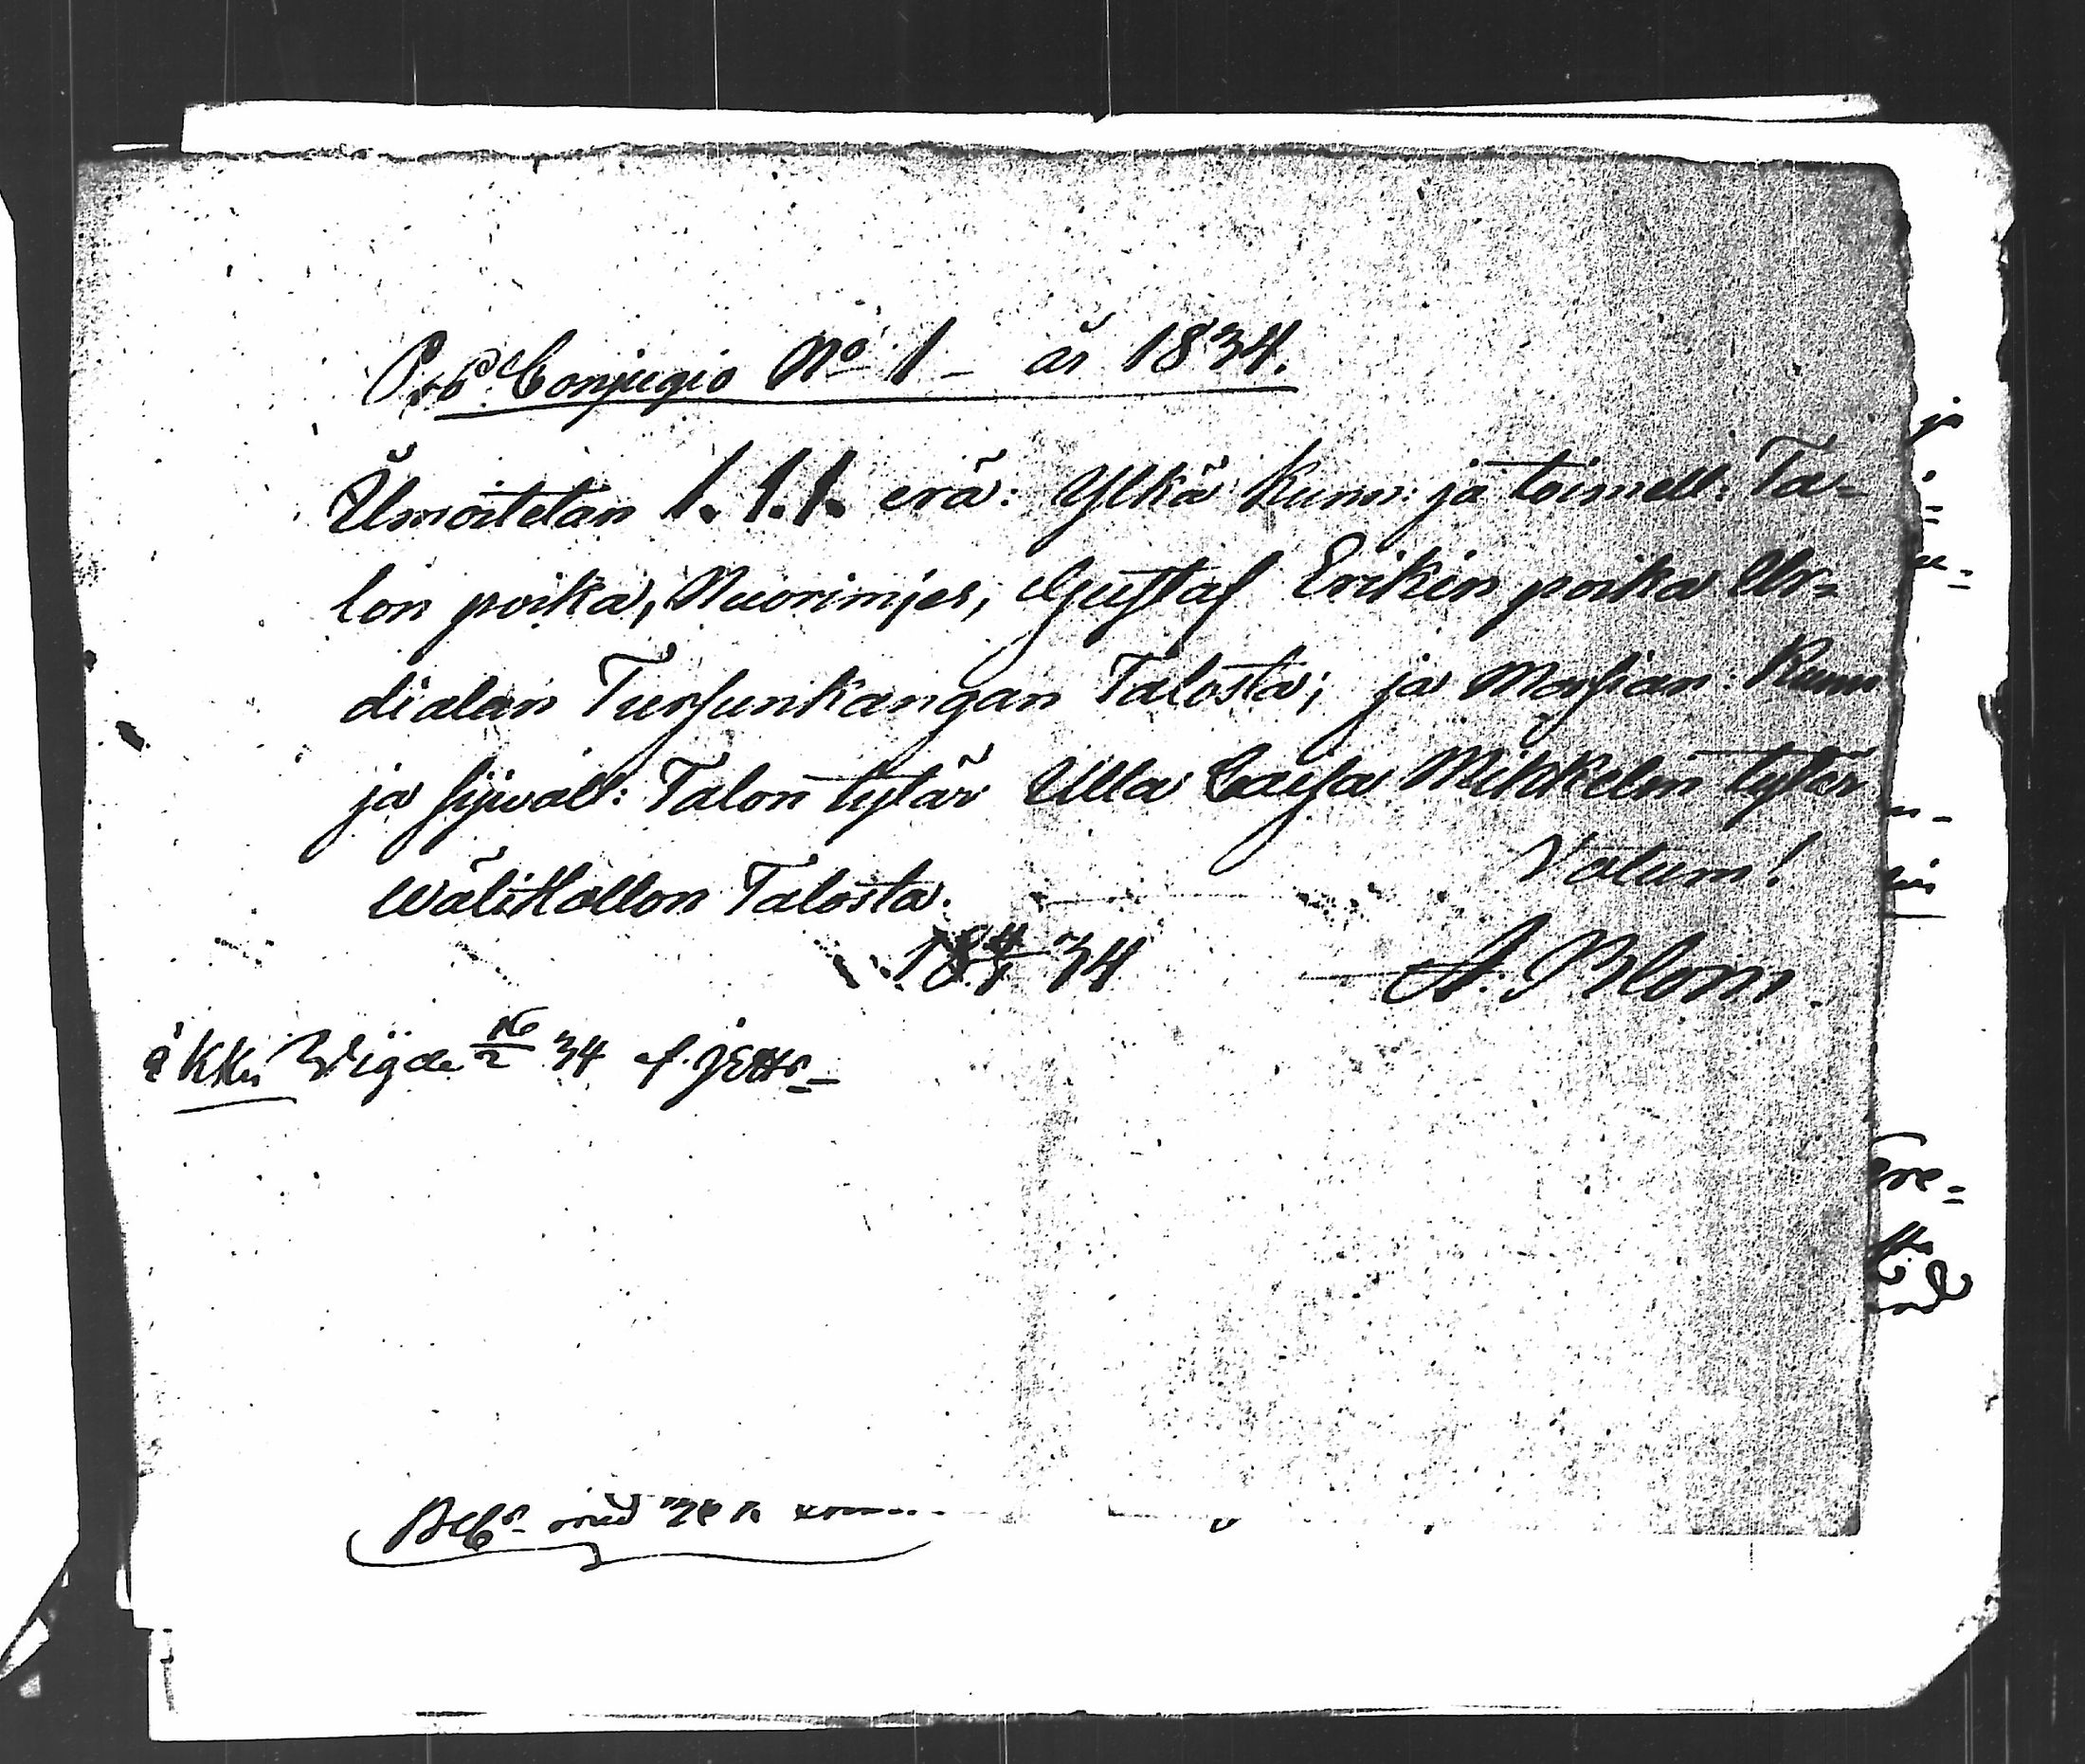 Pro Conjugio No 1 - år 1834.
Ilmoitetan 1. 1. 1. erä: Ylkä Kunn: ja toimell: Ta=
lon poika, Nuorimjes, Gustaf Erikin poika Ur=
dialan Tursunkangan Talosta; ja Morsian: Kunn
ja syiväll: Talon tytär Ulla Caisa Mihkelin tytär
WäliHollon Talosta.
Votum!
18 4/1 34
A. Blom.
Wigde 16/2 34 af